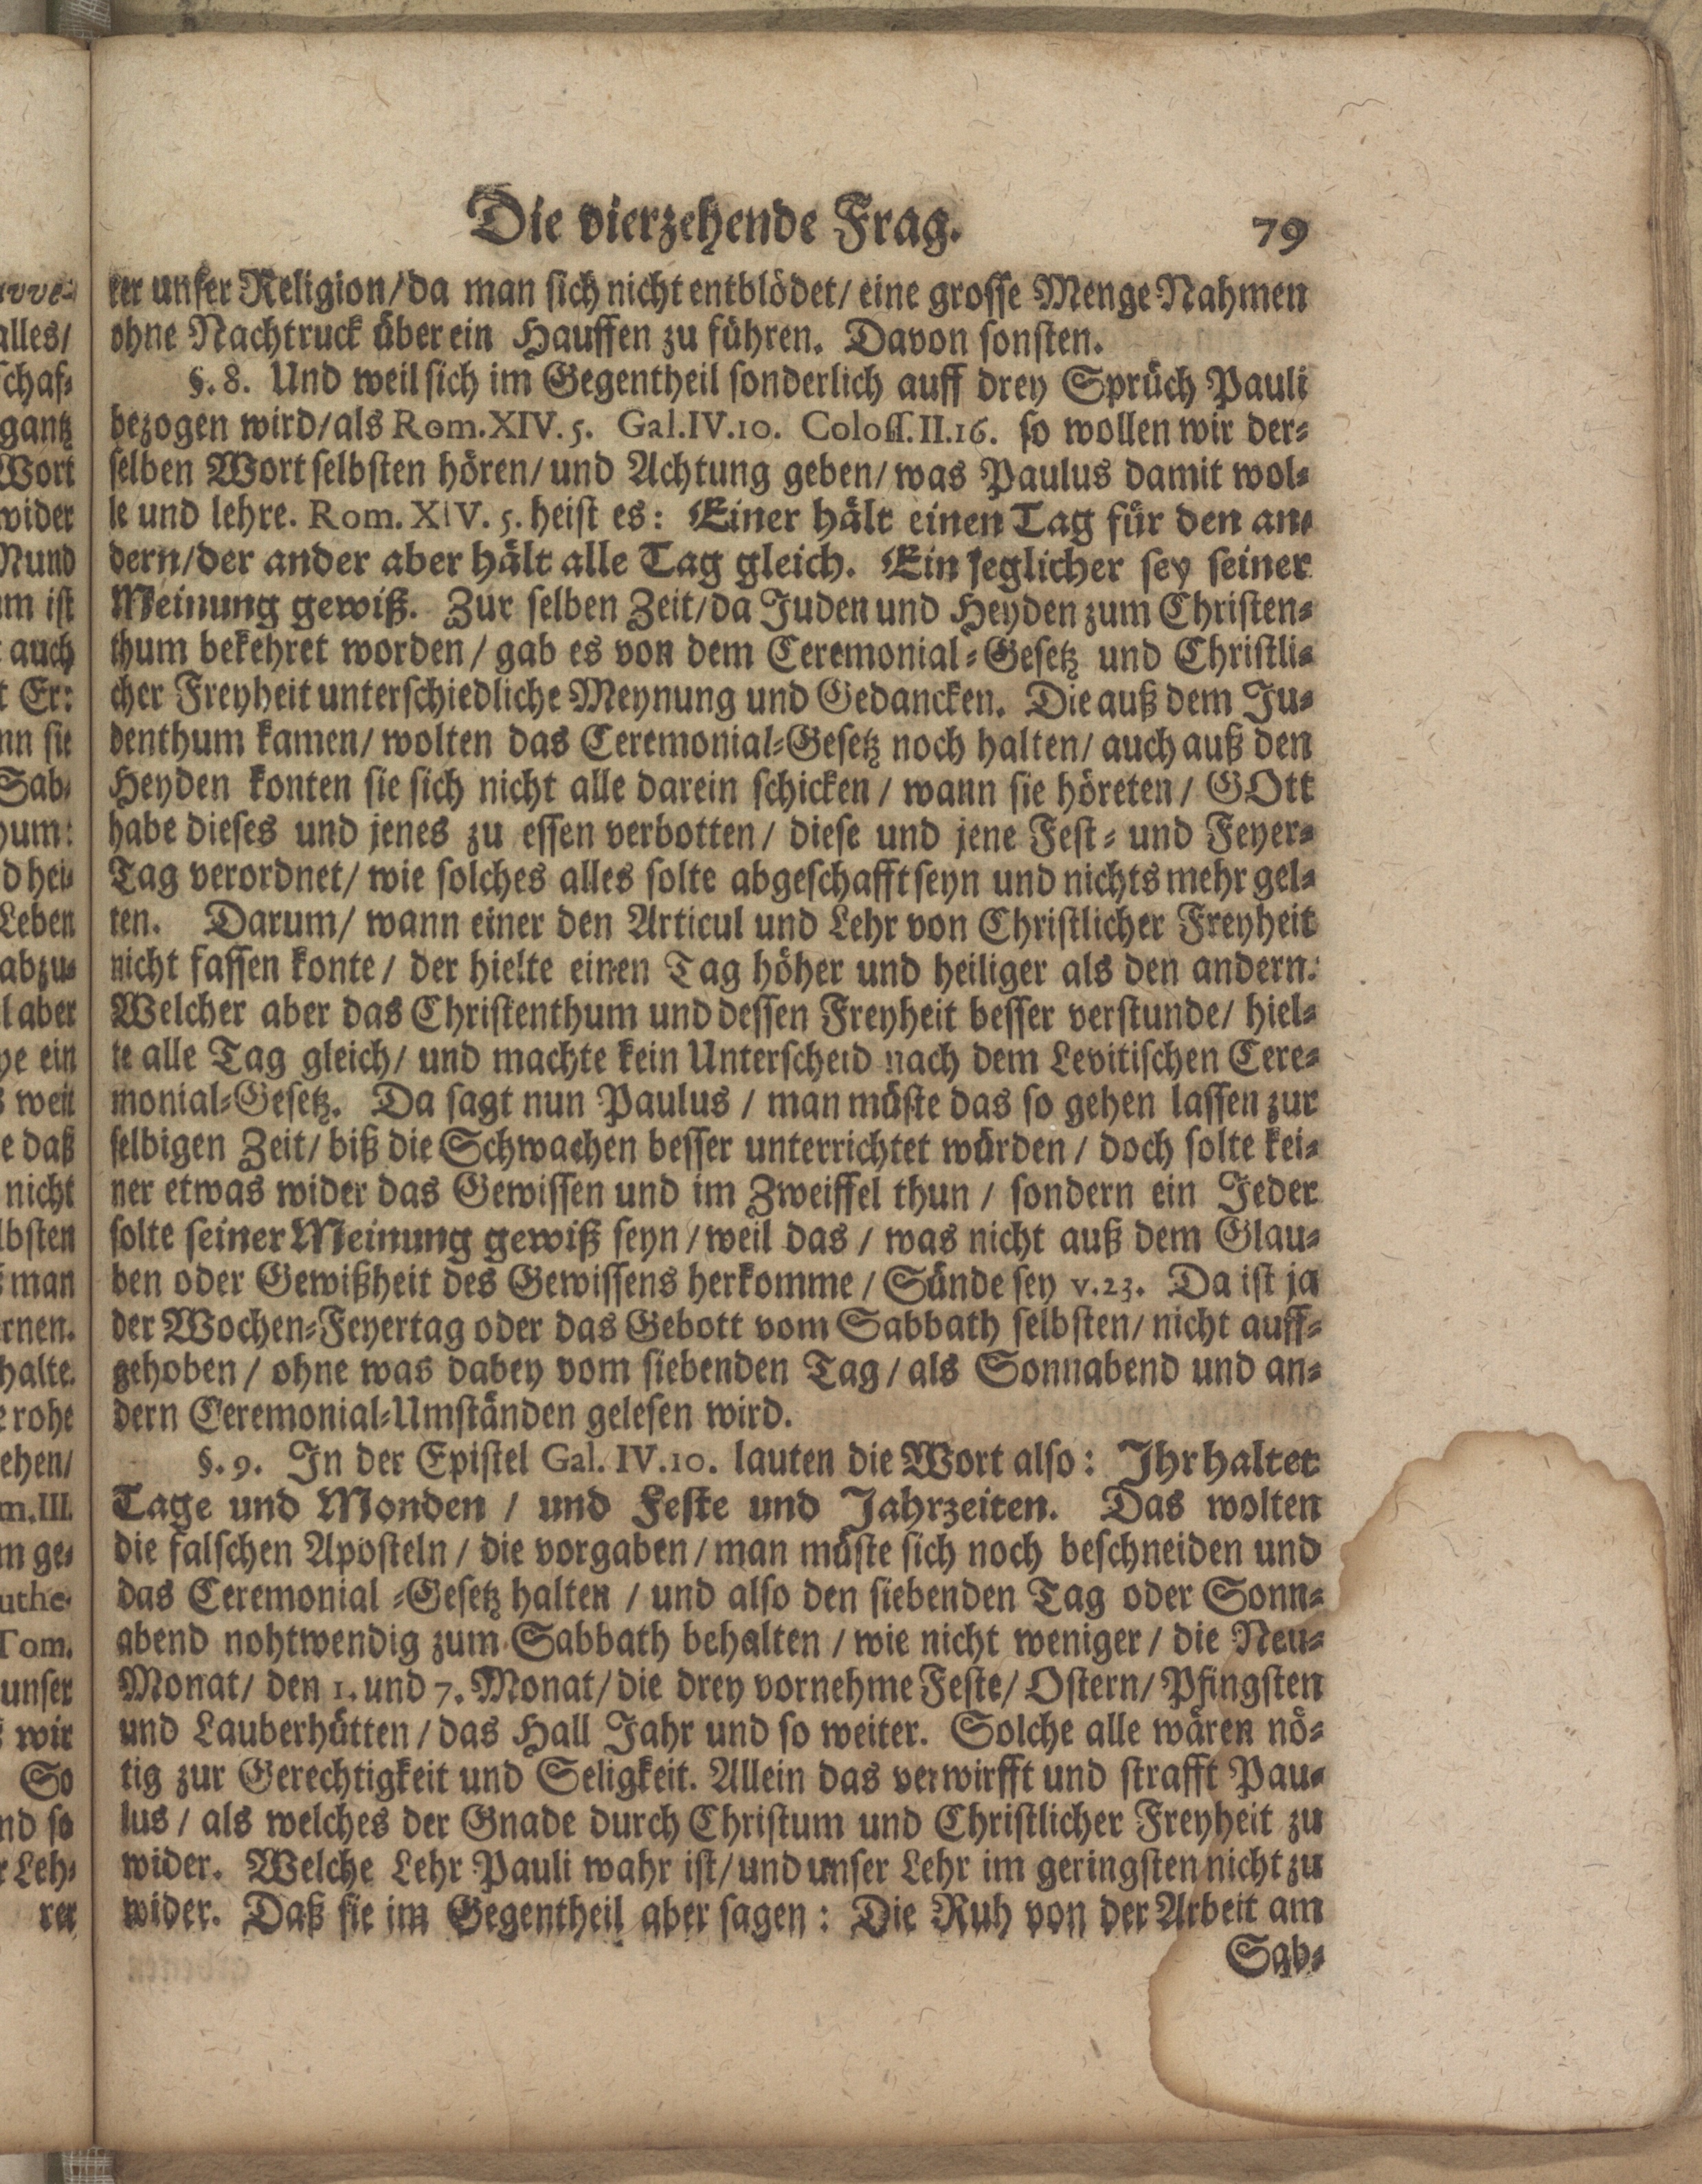 Die vierzehende Frag. 79
ker unser Religion/ da man sich nicht entblödet/ eine grosse Menge Nahmen
ohne Nachtruck über ein Hauffen zu führen. Davon sonsten.
§. 8. Und weil sich im Gegentheil sonderlich auff drey Sprüch Pauli
bezogen wird/ als Rom. XIV. 5. Gal. IV. 10. Coloss. II. 16. so wollen wir der-
selben Wort selbsten hören/ und Achtung geben/ was Paulus damit wol-
le und lehre. Rom. XIV. 5. heist es: Einer hält einen Tag für den an-
dern/ der ander aber hält alle Tag gleich. Ein jeglicher sey seiner
Meinung gewiß. Zur selben Zeit/ da Juden und Heyden zum Christen-
thum bekehret worden/ gab es von dem Ceremonial-Gesetz und Christli-
cher Freyheit unterschiedliche Meynung und Gedancken. Die auß dem Ju-
denthum kamen/ wolten das Ceremonial-Gesetz noch halten/ auch auß den
Heyden konten sie sich nicht alle darein schicken/ wann sie höreten/ GOtt
habe dieses und jenes zu essen verbotten/ diese und jene Fest- und Feyer-
Tag verordnet/ wie solches alles solte abgeschafft seyn und nichts mehr gel-
ten. Darum/ wann einer den Articul und Lehr von Christlicher Freyheit
nicht fassen konte/ der hielte einen Tag höher und heiliger als den andern:
Welcher aber das Christenthum und dessen Freyheit besser verstunde/ hiel-
te alle Tag gleich/ und machte kein Unterscheid nach dem Levitischen Cere-
monial-Gesetz. Da sagt nun Paulus/ man müste das so gehen lassen zur
selbigen Zeit/ biß die Schwachen besser unterrichtet würden/ doch solte kei-
ner etwas wider das Gewissen und im Zweiffel thun/ sondern ein Jeder
solte seiner Meinung gewiß seyn/ weil das/ was nicht auß dem Glau-
ben oder Gewißheit des Gewissens herkomme/ Sünde sey v. 23. Da ist ja
der Wochen-Feyertag oder das Gebott vom Sabbath selbsten/ nicht auff-
gehoben/ ohne was dabey vom siebenden Tag/ als Sonnabend und an-
dern Ceremonial-Umständen gelesen wird.
§. 9. In der Epistel Gal. IV. 10. lauten die Wort also: Ihr haltet
Tage und Monden/ und Feste und Jahrzeiten. Das wolten
die falschen Aposteln/ die vorgaben/ man müste sich noch beschneiden und
das Ceremonial-Gesetz halten/ und also den siebenden Tag oder Sonn-
abend nohtwendig zum Sabbath behalten/ wie nicht weniger/ die Neu-
Monat/ den 1. und 7. Monat/ die drey vornehme Feste/ Ostern/ Pfingsten
und Lauberhütten/ das Hall Jahr und so weiter. Solche alle wären nö-
tig zur Gerechtigkeit und Seligkeit. Allein das verwirfft und strafft Pau-
lus/ als welches der Gnade durch Christum und Christlicher Freyheit zu
wider. Welche Lehr Pauli wahr ist/ und unser Lehr im geringsten nicht zu
wider. Daß sie im Gegentheil aber sagen: Die Ruh von der Arbeit am
Sab-